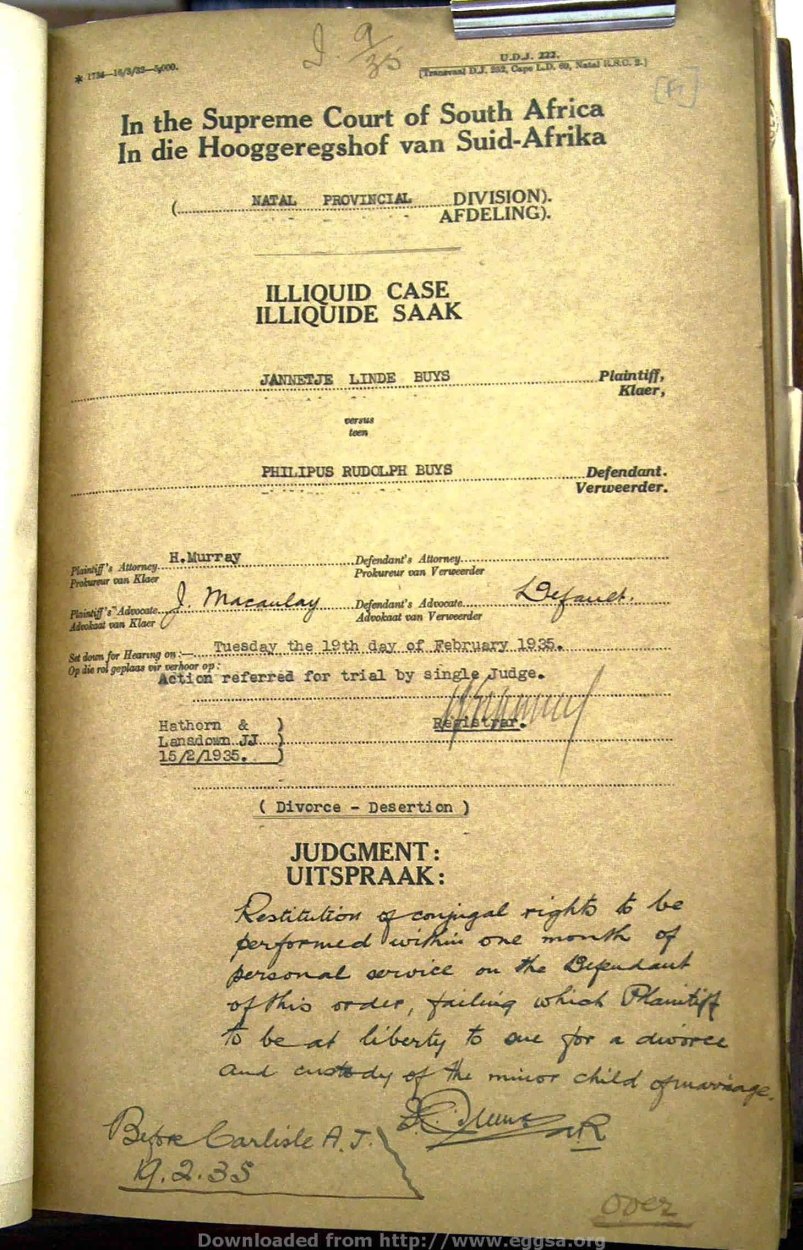 * 1734—16/3/33—5,000.
I. 9/35
U.D.J. 222.
(Transvaal D.J. 252, Cape L.D. 69, Natal R.S.C. 2.)
In the Supreme Court of South Africa
In die Hooggeregshof van Suid-Afrika
( NATAL PROVINCIAL DIVISION).
AFDELING).
ILLIQUID CASE
ILLIQUIDE SAAK
JANNETJE LINDE BUYS Plaintiff,
Klaer,
versus
teen
PHILIPUS RUDOLPH BUYS Defendant.
Verweerder.
Plaintiff's Attorney H. Murray Defendant's Attorney
Prokureur van Klaer Prokureur van Verweerder
Plaintiff's Advocate J. Macaulay Defendant's Advocate Default.
Advokaat van Klaer Advokaat van Verweerder
Set down for Hearing on :— Tuesday the 19th day of February 1935.
Op die rol geplaas vir verhoor op :
Action referred for trial by single Judge.
Hathorn & )
Registrar.
Lansdown JJ. )
15/2/1935. )
( Divorce - Desertion )
JUDGMENT :
UITSPRAAK :
Restitution of conjugal rights to be
performed within one month of
personal service on the Defendant
of this order, failing which Plaintiff
to be at liberty to sue for a divorce
and custody of the minor child of marriage.
Before Carlisle A.J.
19.2.35
over
Downloaded from http://www.eggsa.org